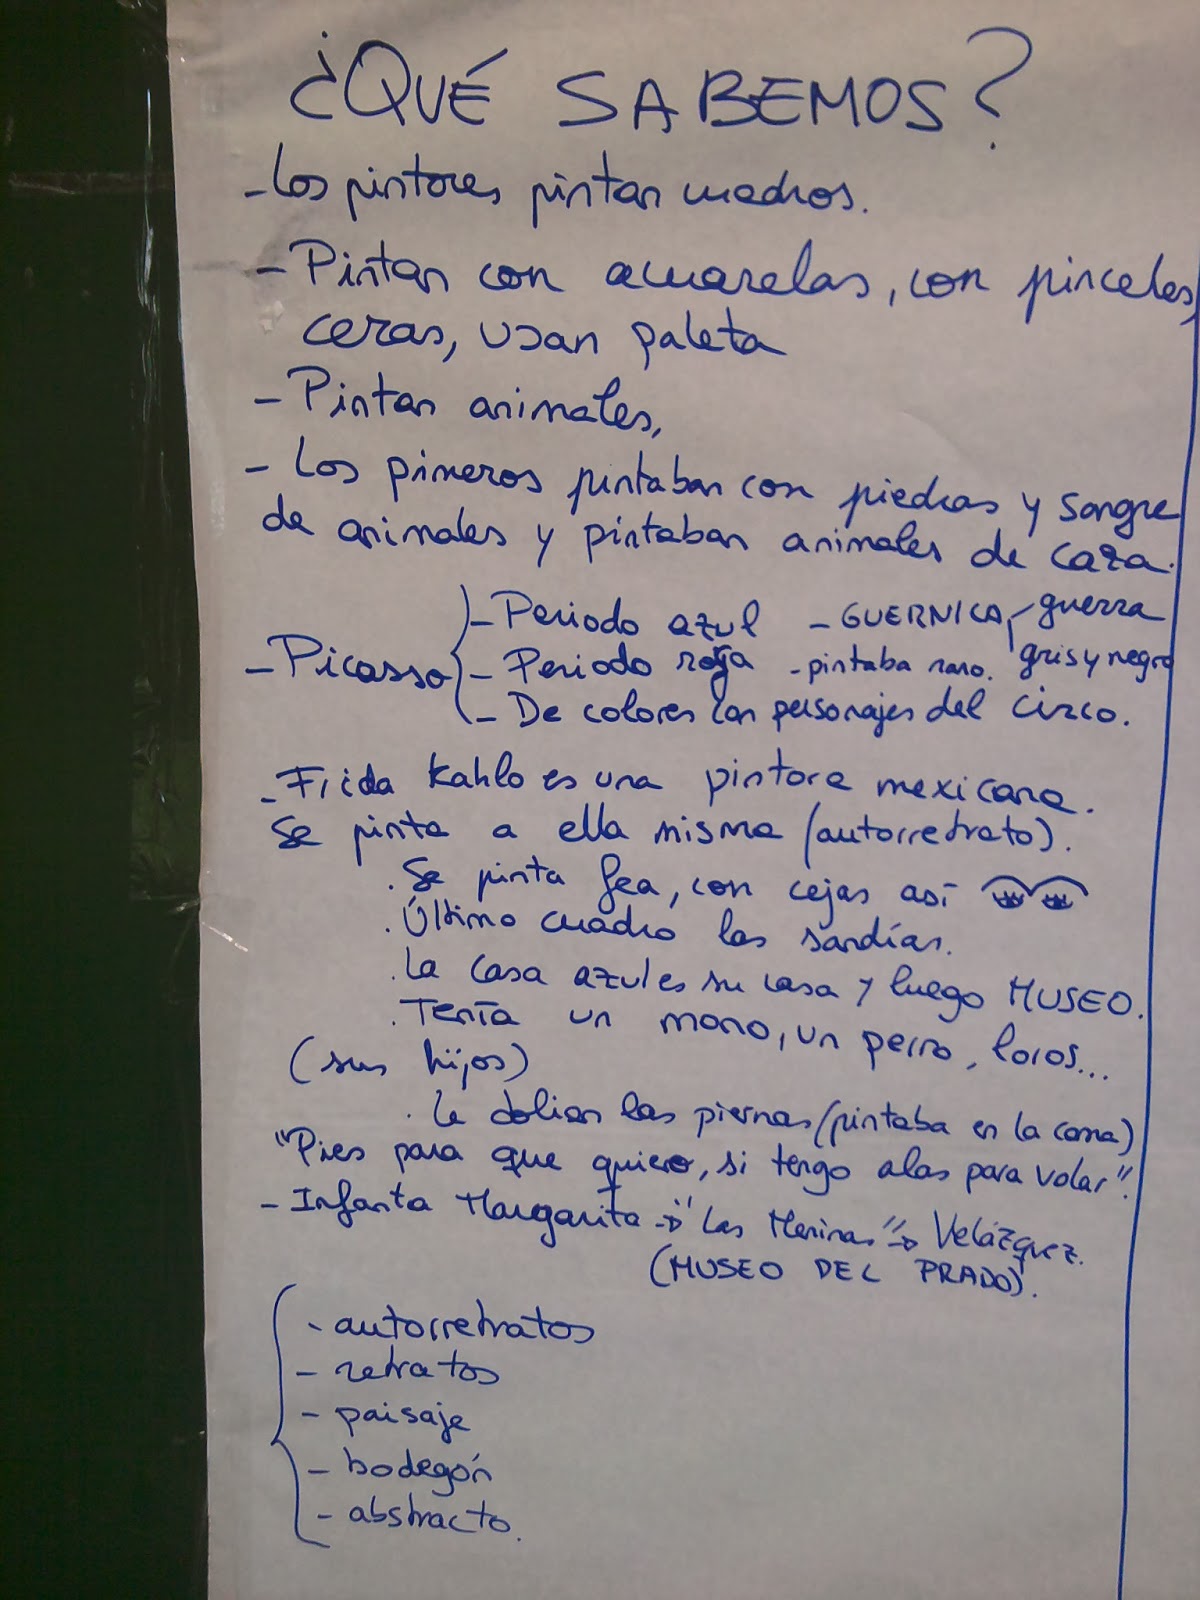 ¿QUÉ SABEMOS?
- Los pintores pintan cuadros.
- Pintan con acuarelas, con pinceles,
ceras, usan paleta
- Pintan animales,
- Los primeros pintaban con piedras y sangre
de animales y pintaban animales de caza.
- Picasso
- Periodo azul - GUERNICA, guerra
- Periodo rosa - pintaba raro. gris y negro
- De colores los personajes del circo.
- Frida Kahlo es una pintora mexicana.
Se pinta a ella misma (autorretrato).
. Se pinta fea, con cejas así
. Último cuadro las sandías.
. La casa azul es su casa y luego MUSEO.
. Tenía un mono, un perro, loros...
(sus hijos)
. Le dolían las piernas (pintaba en la cama)
"Pies para que quiero, si tengo alas para volar".
- Infanta Margarita → "Las Meninas" → Velázquez.
(MUSEO DEL PRADO).
- autorretratos
- retratos
- paisaje
- bodegón
- abstracto.